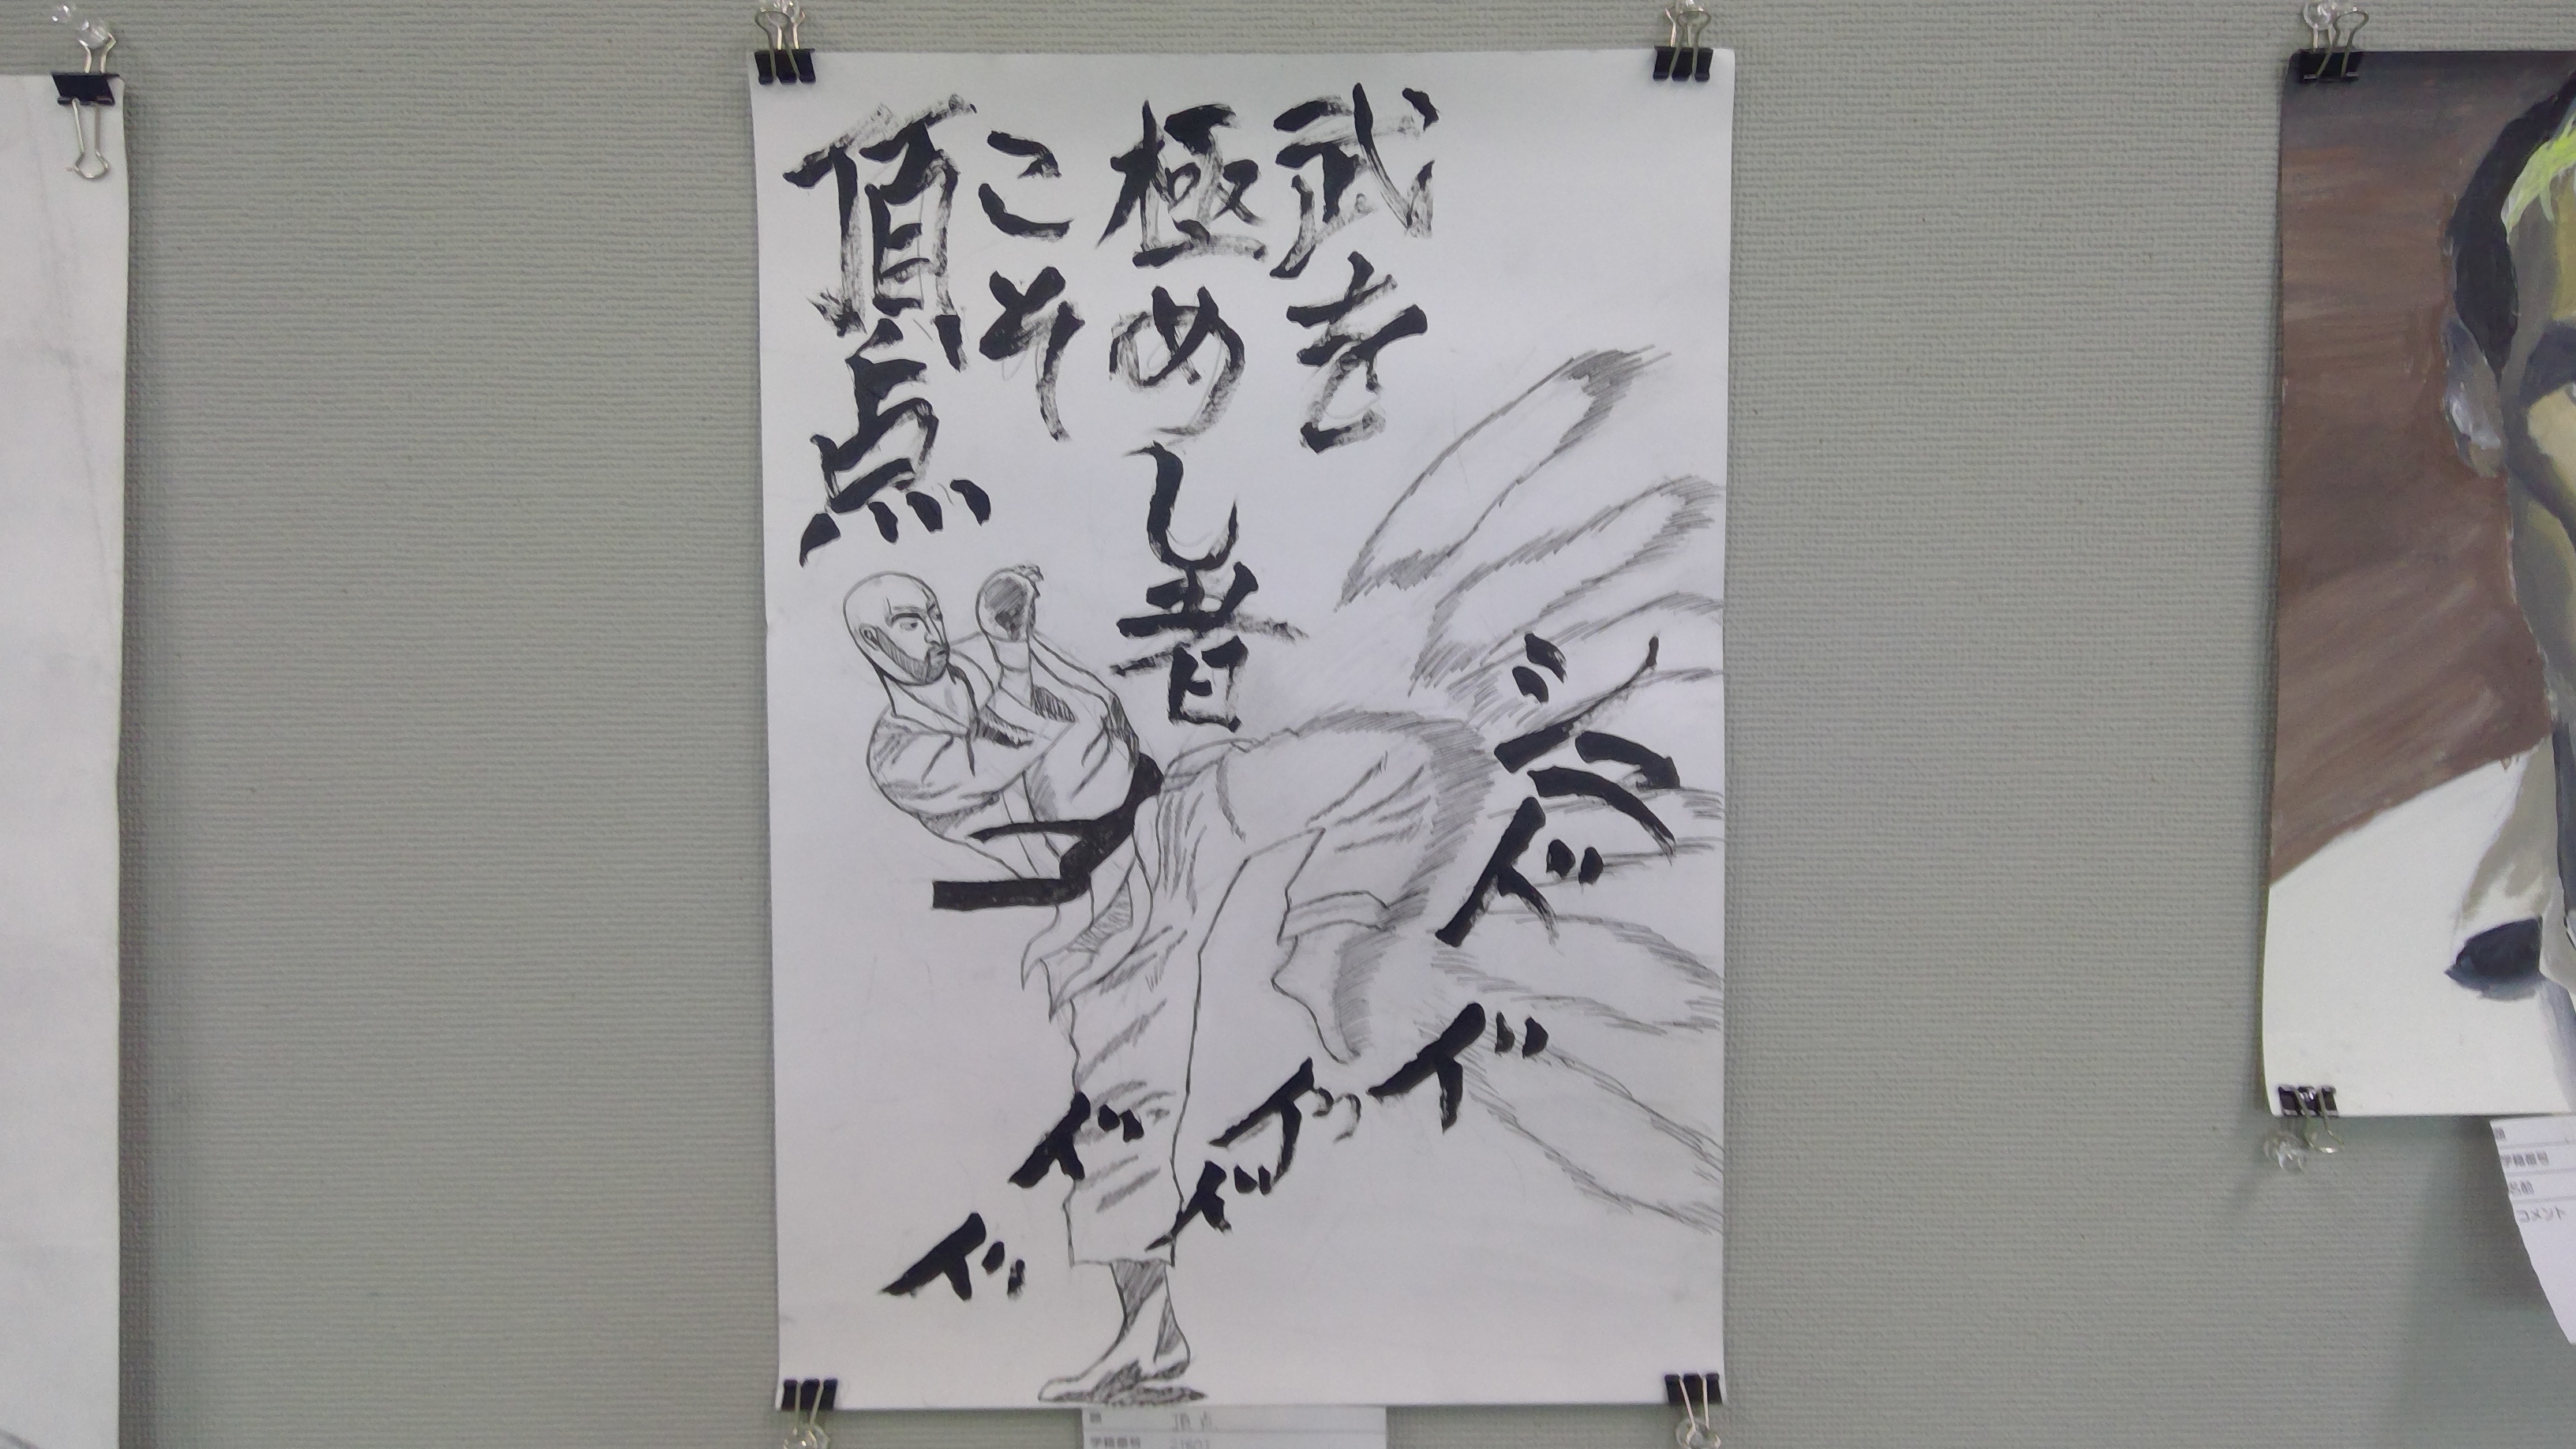 武を
極めし者
こそ
頂点
ド
ド
ド
ド
ド
ド
題 頂点
学籍番号
学籍番号
名前
コメント